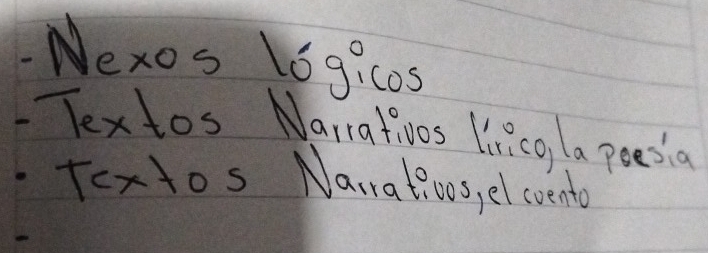 - Nexos lógicos
- Textos Narrativos lírico, la poesía
- Textos Narrativos, el cuento
-